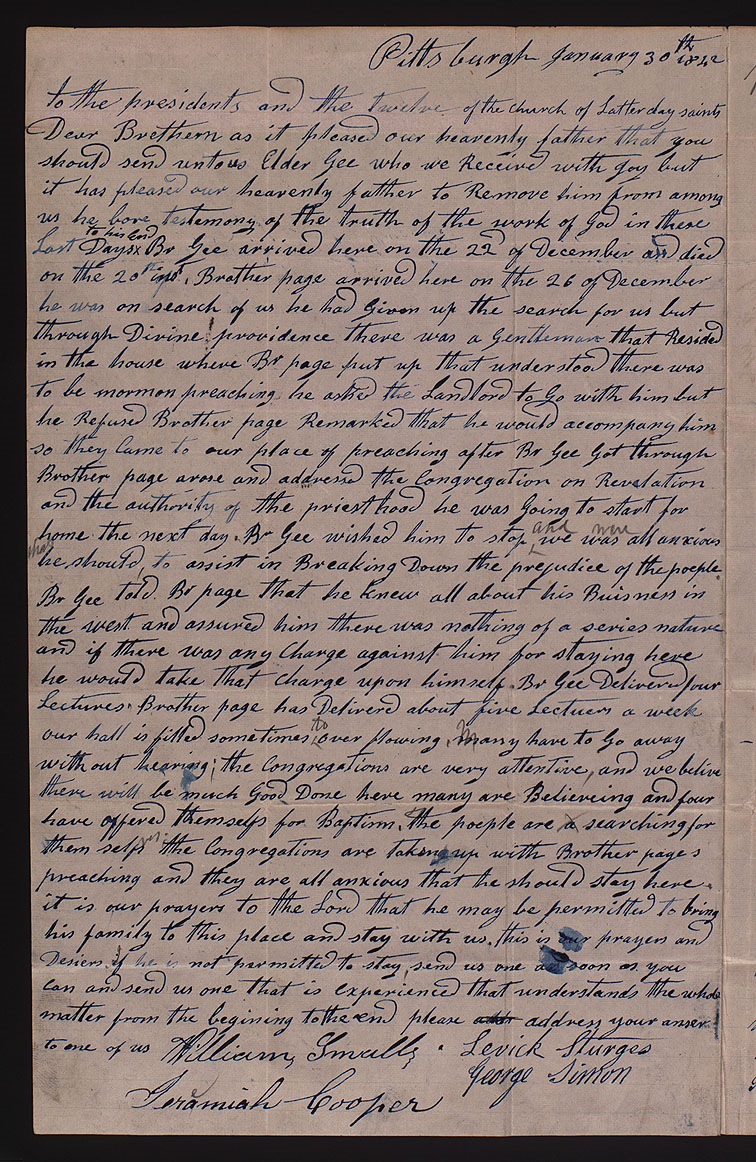 Pittsburgh January 30th 1842
to the presidents and the twelve of the church of Latter day saints
Dear Brethern as it pleased our heavenly father that you
should send unto us Elder Gee who we Received with Joy but
it has pleased our heavenly father to Remove him from among
us he bore testemony of the truth of the work of God in these
to his End
Last Days Br Gee arrived here on the 22d of December and died
on the 20th inst. Brother page arrived here on the 26 of December
he was on search of us he had Given up the search for us but
through Divine providence there was a Gentleman that Resided
in the house where Br page put up that understood there was
to be mormon preaching he asked the Landlord to Go with him but
he Refused Brother page Remarked that he would accompany him
so they Came to our place of preaching after Br Gee Got through
Brother page arose and addressed the Congregation on Revalation
and the authority of the priesthood he was Going to start for
and were
home the next day. Br Gee wished him to stop we was all anxious
that
he should, to assist in Breaking Down the prejudice of the poeple
Br Gee told. Br page that he knew all about his Buisness in
the west and assured him there was nothing of a series nature
and if there was any Charge against him for staying here
he would take that Charge upon himself. Br Gee Delivered four
Lectures. Brother page has Delivered about five Lectuers a week
to
our hall is filled sometimes over flowing. Many have to Go away
without hearing; the Congregations are very attentive, and we belive
there will be much Good Done here many are Believeing and four
have offered themselfs for Baptism. the poeple are a searching for
them selfs the Congregations are taking up with Brother pages
preaching and they are all anxious that he should stay here.
it is our prayers to the Lord that he may be permitted to bring
his family to this place and stay with us, this is our prayers and
Desiers if he is not permitted to stay send us one as soon as you
can and send us one that is experienced that understands the whole
matter from the begining to the end please address your anser
to one of us William Small, Levick Sturges
George Simon
Jeramiah Cooper